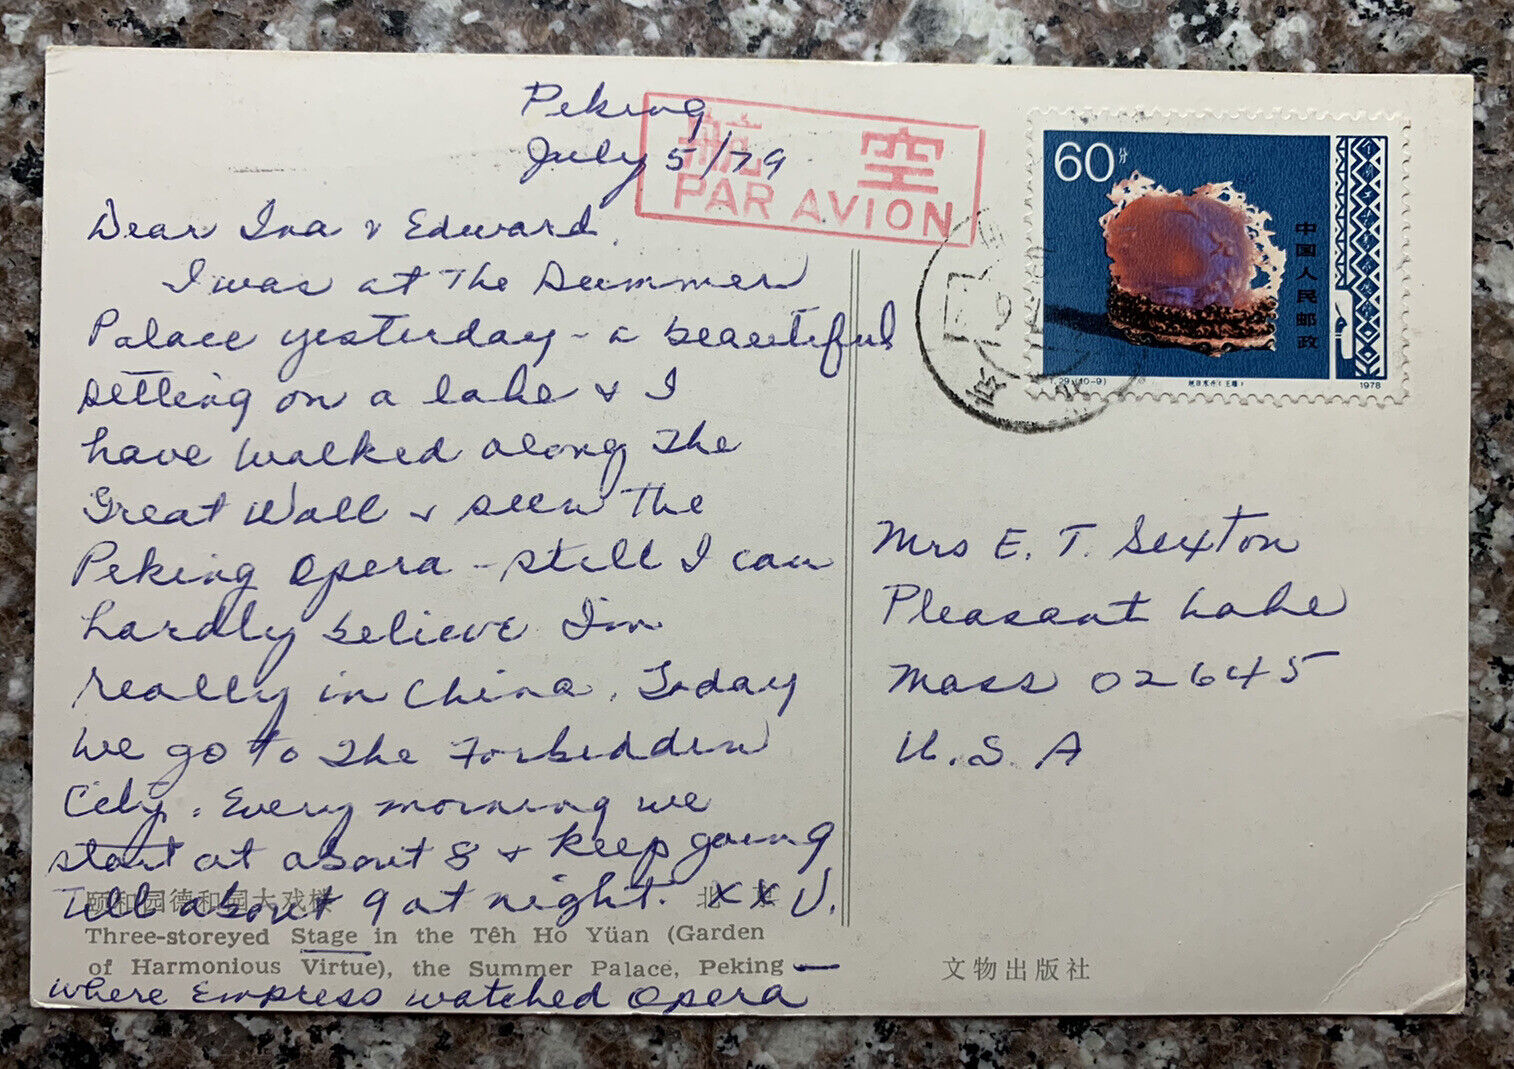 Peking
July 5/79
航空
PAR AVION
Dear Ina & Edward,
I was at the Summer
Palace yesterday - a beautiful
setting on a lake & I
have walked along the
Great Wall & seen the
Peking Opera - still I can
hardly believe I'm
really in China. Today
we go to the Forbidden
City. Every morning we
start at about 8 & keep going
till about 9 at night. XX V.
颐和园德和园大戏楼 北京
Three-storeyed Stage in the Têh Ho Yüan (Garden
of Harmonious Virtue), the Summer Palace, Peking —
where Empress watched opera
60分
中国人民邮政
T.29.(10-9)
1978
Mrs E. T. Sexton
Pleasant Lake
Mass 02645
U.S.A
文物出版社